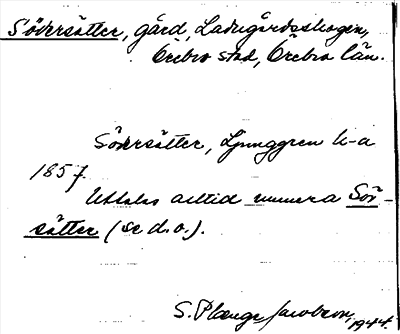 Södersätter, gård, Ladugårdsskogen,
Örebro stad, Örebro län.
Södersätter, Ljunggren k-a
1857.
Uttalas alltid numera Sör-
sätter (se d.o.).
S. Plænge Jacobson, 1944.